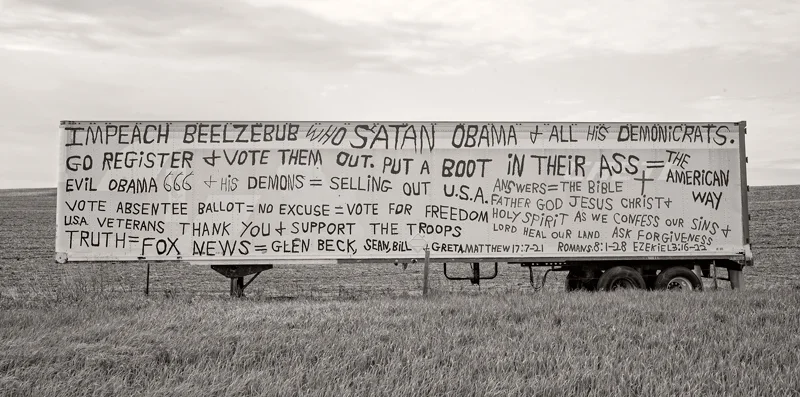 IMPEACH BEELZEBUB WHO SATAN OBAMA & ALL HIS DEMONICRATS.
GO REGISTER & VOTE THEM OUT. PUT A BOOT IN THEIR ASS = THE AMERICAN WAY
EVIL OBAMA 666 & HIS DEMONS = SELLING OUT U.S.A.
VOTE ABSENTEE BALLOT = NO EXCUSE = VOTE FOR FREEDOM
USA VETERANS THANK YOU & SUPPORT THE TROOPS
TRUTH = FOX NEWS = GLEN BECK, SEAN, BILL & GRETA
ANSWERS = THE BIBLE
FATHER GOD JESUS CHRIST &
HOLY SPIRIT AS WE CONFESS OUR SINS &
LORD HEAL OUR LAND ASK FORGIVENESS
MATTHEW 17:7-21 ROMANS 8:1-28 EZEKIEL 3:16-22